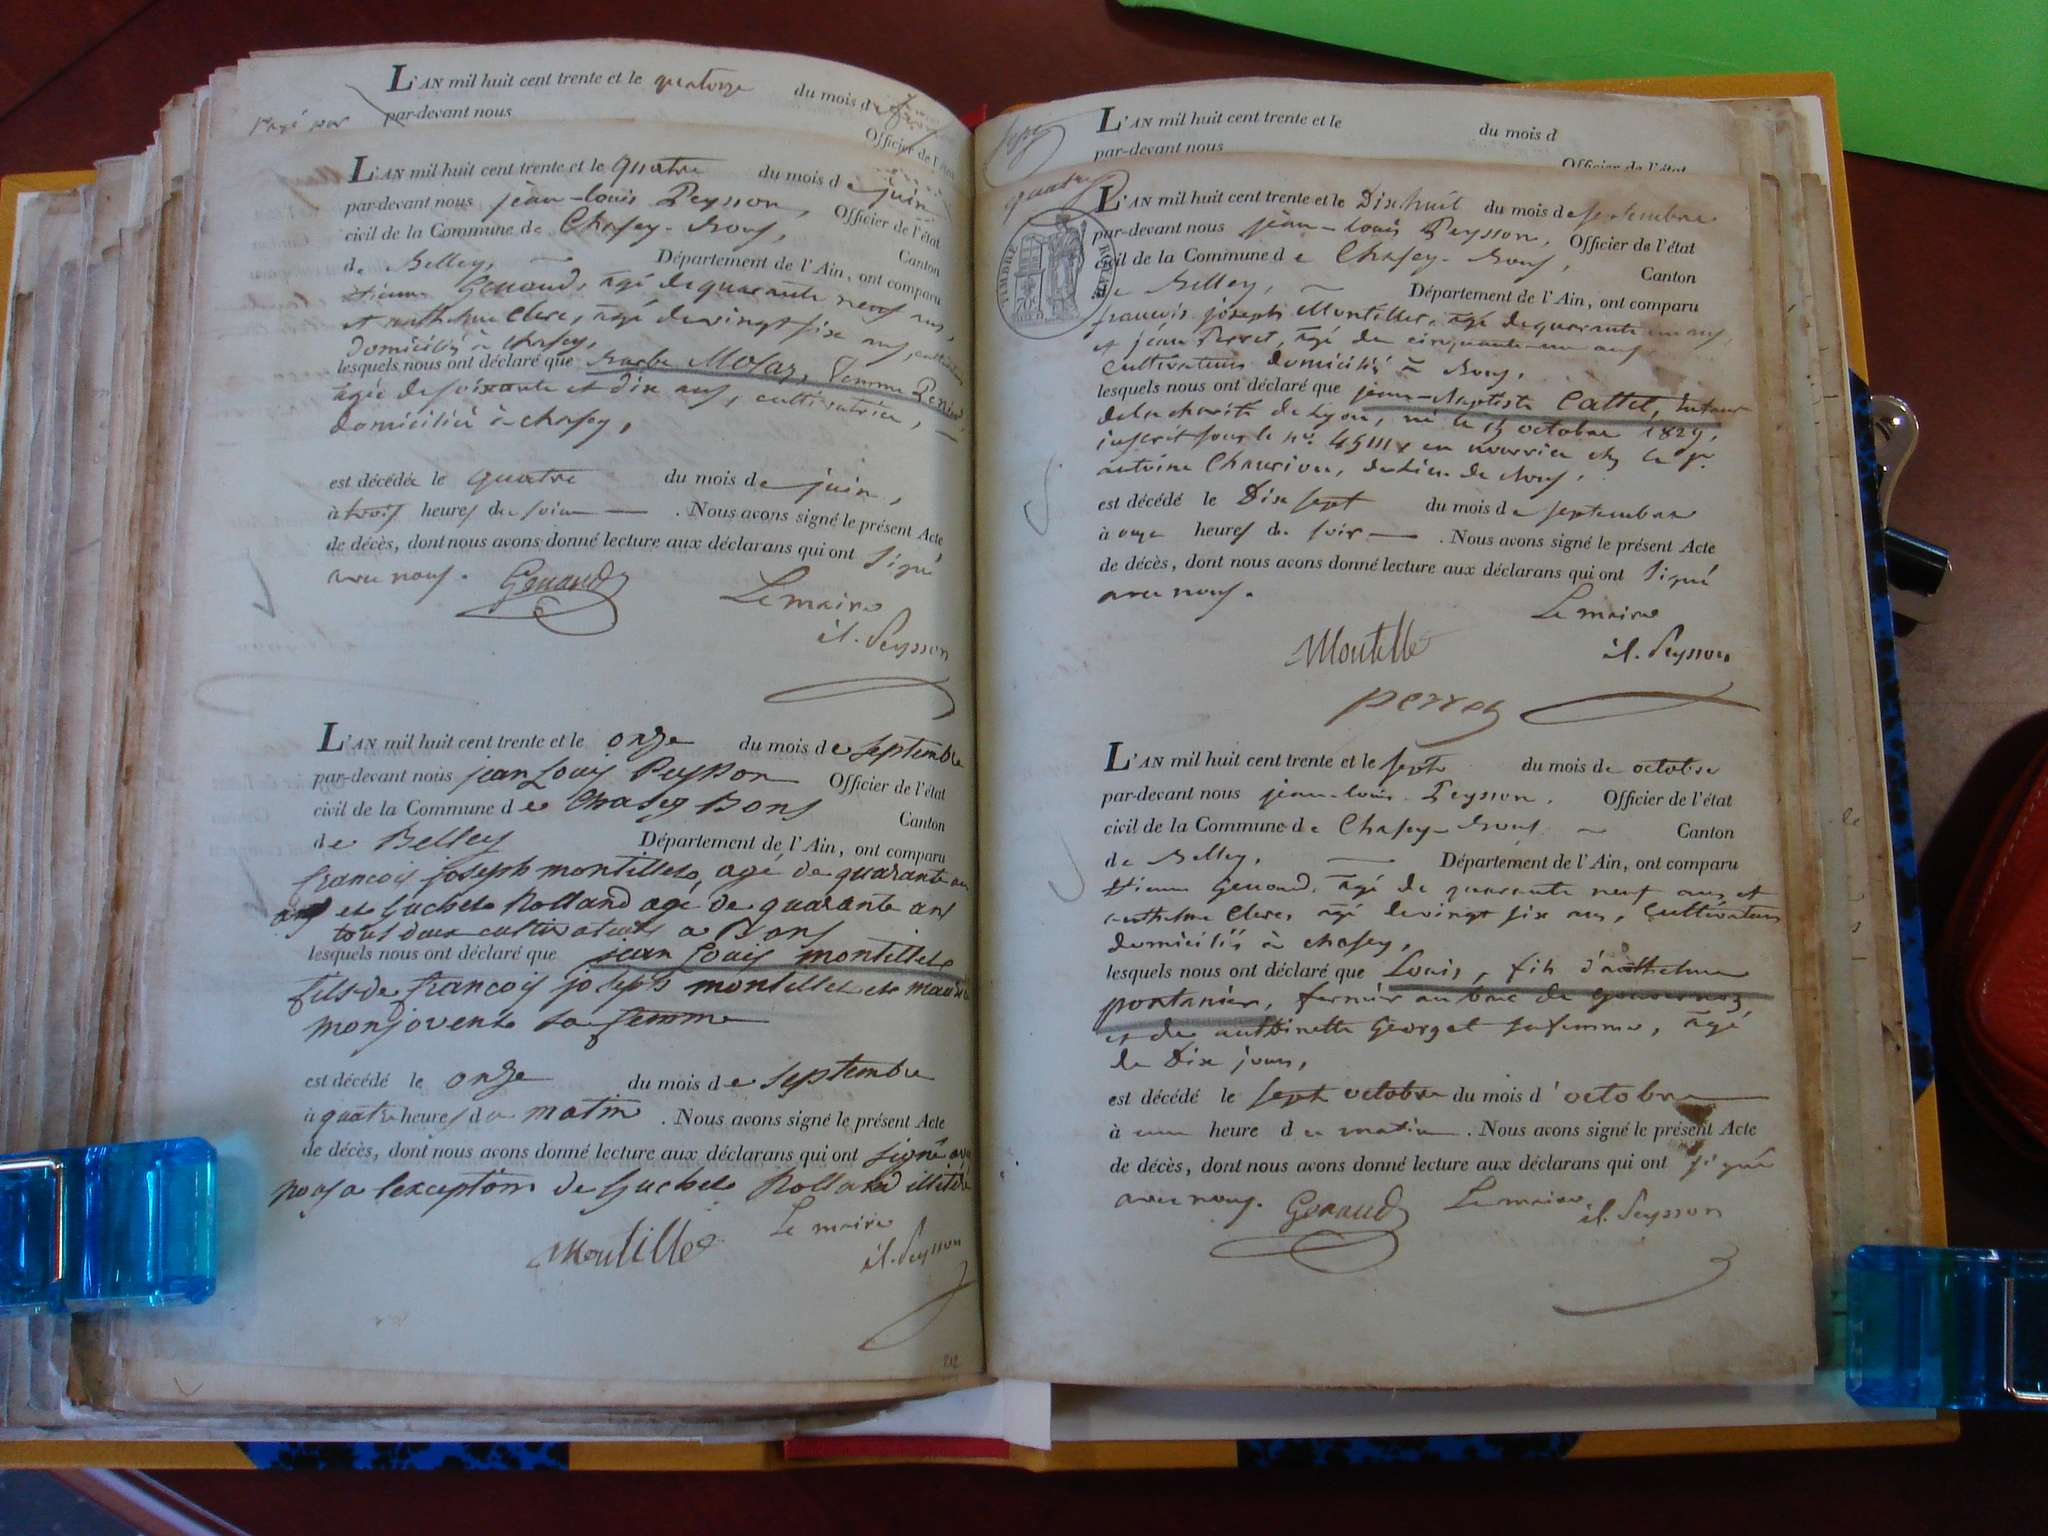 L'AN mil huit cent trente et le quatorze du mois d
par-devant nous
Officier de l'état
L'AN mil huit cent trente et le quatre du mois de juin
par-devant nous jean-louis Peysson, Officier de l'état
civil de la Commune de Chasey-Bons, Canton
de Belley, Département de l'Ain, ont comparu
étienne Genoud, âgé de quarante neuf ans,
et anthelme Clerc, âgé de vingt six ans, cultivateurs
domiciliés à chasey,
lesquels nous ont déclaré que Barbe Molaz, femme
âgée de soixante et dix ans, cultivatrice,
domiciliée à chasey,
est décédée le quatre du mois de juin,
à trois heures du soir . Nous avons signé le présent Acte
de décès, dont nous avons donné lecture aux déclarans qui ont signé
avec nous. Genoud Le maire
j.l. Peysson
L'AN mil huit cent trente et le onze du mois de septembre
par-devant nous jean Louis Peysson Officier de l'état
civil de la Commune de Chasey Bons Canton
de Belley Département de l'Ain, ont comparu
francois joseph montillet, agé de quarante un
ans et Guchet Rolland agé de quarante ans
tous deux cultivateurs a Bons
lesquels nous ont déclaré que jean Louis montillet
fils de francois joseph montillet et marie
monjovent sa femme
est décédé le onze du mois de septembre
à quatre heures du matin . Nous avons signé le présent Acte
de décès, dont nous avons donné lecture aux déclarans qui ont signé avec
nous a l'exception de Guchet Rolland illitéré
Le maire
Montillet j.l. Peysson
212
L'AN mil huit cent trente et le du mois d
par-devant nous
Officier de l'état
quatre
TIMBRE ROYAL
L'AN mil huit cent trente et le Dix huit du mois de septembre
par-devant nous jean-louis Peysson, Officier de l'état
civil de la Commune de Chasey-Bons, Canton
de Belley, Département de l'Ain, ont comparu
francois joseph Montillet, âgé de quarante un ans,
et jean Perret, âgé de cinquante-un ans,
cultivateurs domiciliés à Bons,
lesquels nous ont déclaré que jean-Baptiste Cattet, enfant
de la charité de Lyon, né le 15 octobre 1829,
inscrit sous le n° en nourrice chez le Sr
antoine Chaurion, du lieu de Bons,
est décédé le Dix sept du mois de septembre
à onze heures du soir . Nous avons signé le présent Acte
de décès, dont nous avons donné lecture aux déclarans qui ont signé
avec nous.
Le maire
Montillet j.l. Peysson
perret
L'AN mil huit cent trente et le sept du mois de octobre
par-devant nous jean-louis Peysson, Officier de l'état
civil de la Commune de Chasey-Bons Canton
de Belley, Département de l'Ain, ont comparu
étienne Genoud, âgé de quarante neuf ans et
anthelme Clerc, âgé de vingt six ans, cultivateurs
domiciliés à chasey,
lesquels nous ont déclaré que Louis, fils d'anthelme
pontanier, fermier au bac de
et de anthoinette Georget sa femme, âgé
de Dix jours,
est décédé le sept octobre du mois d'octobre
à une heure du matin . Nous avons signé le présent Acte
de décès, dont nous avons donné lecture aux déclarans qui ont signé
avec nous. Genoud Le maire
j.l. Peysson